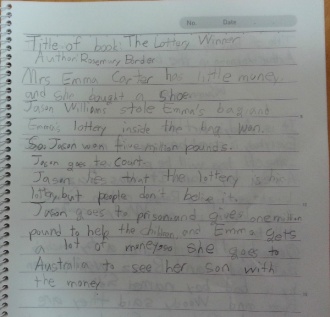 No. Date
Title of book: The Lottery Winner
Author: Rosemary Border
Mrs Emma Carter has little money
and she bought a shoe.
Jason Williams stole Emma's bag and
Emma's lottery inside the bag won.
So Jason won five million pounds.
Jason goes to court.
Jason lies that the lottery is his
lottery but people don't belive it.
Jason goes to prison and gives one million
pound to help the children and Emma gets
a lot of money so she goes to
Australia to see her son with
the money